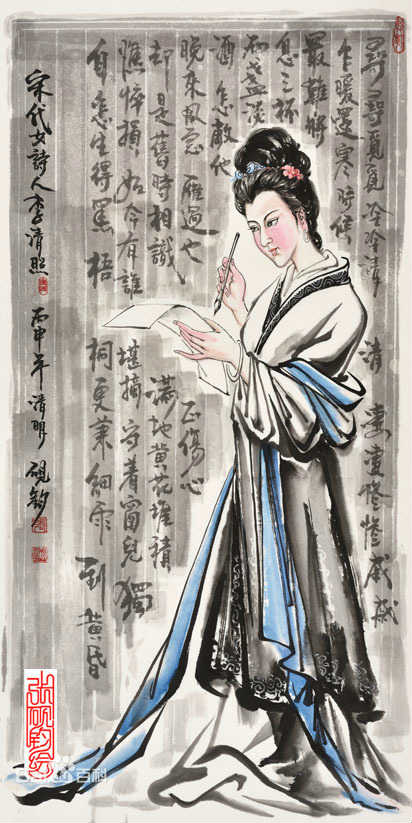 尋尋覓覓冷冷清清凄凄慘慘戚戚
乍暖還寒時候
最難將
息三杯
兩盞淡
酒怎敵他
晚來風急雁過也正傷心
却是舊時相識滿地黃花堆積
憔悴損如今有誰堪摘守着窗兒獨
自怎生得黑梧桐更兼細雨到黃昏
宋代女詩人李清照丙申年清明硯鈞
百科